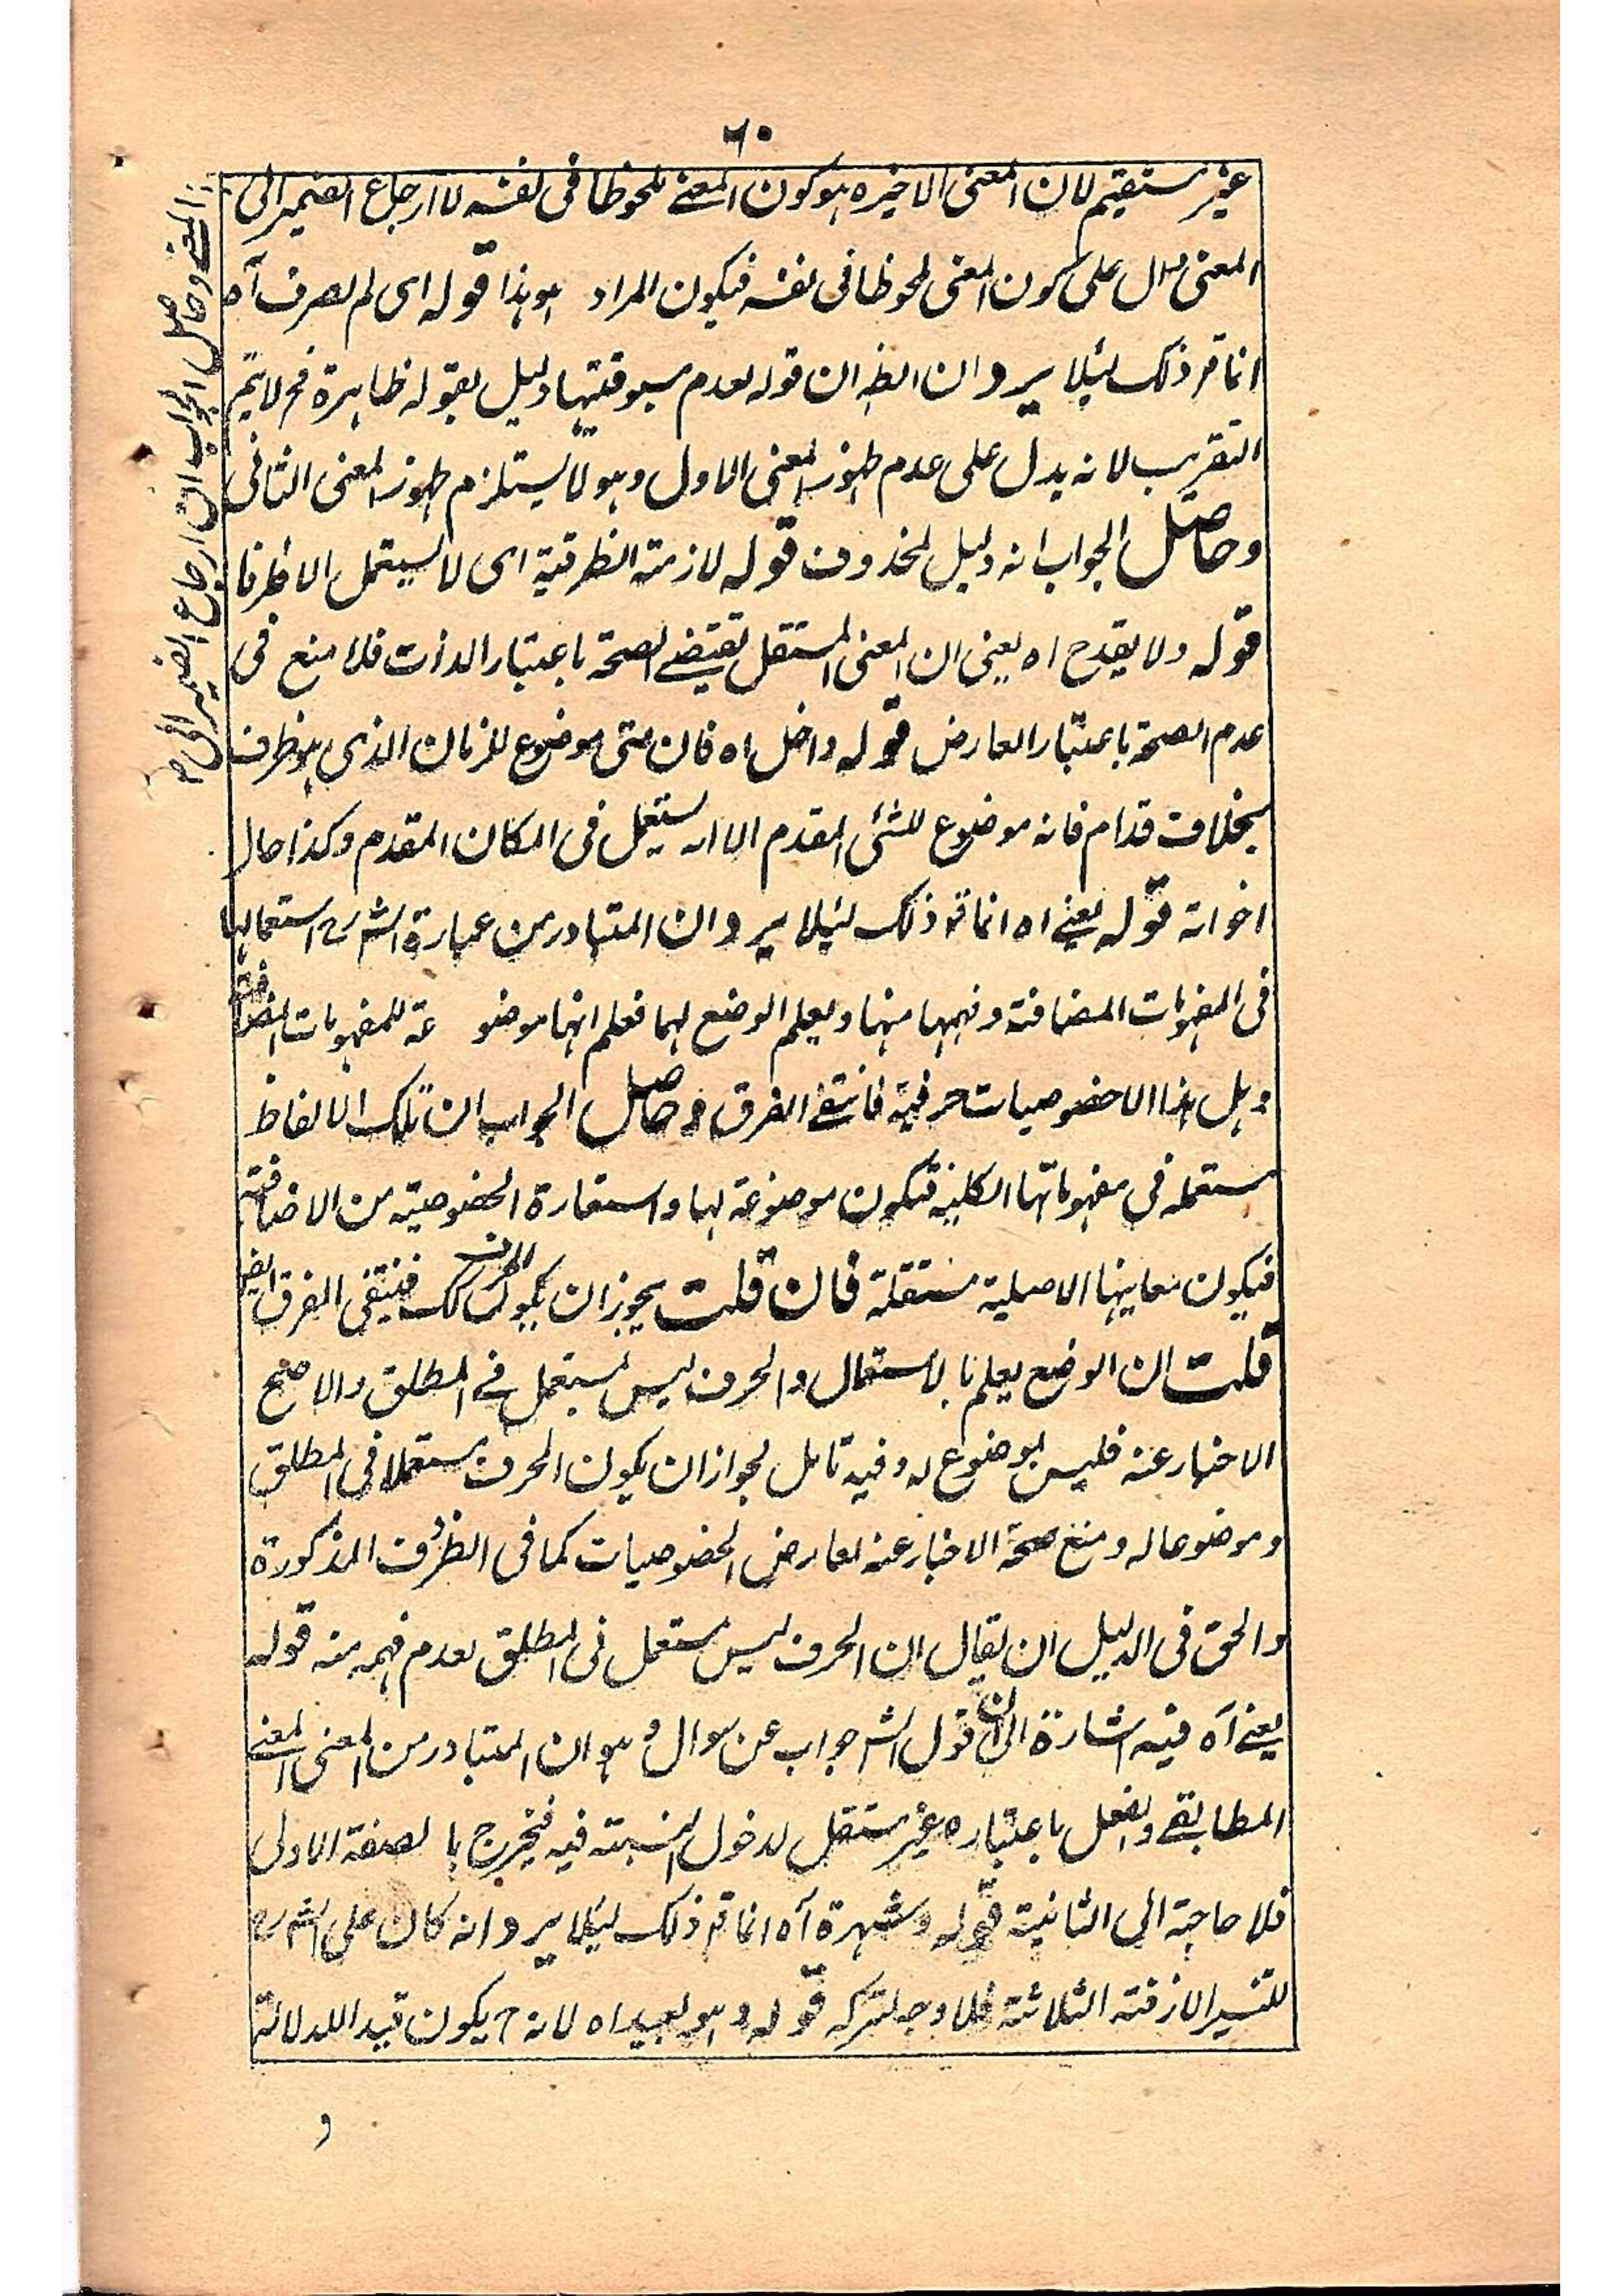 ٦٠
غير مستقيم لان المعنى الاخير هو كون المعنے ملحوظا فى نفسه لا ارجاع الضمير الى
المعنى دال على كون المعنى ملحوظا فى نفسه فيكون المراد هو هذا قوله اى لم يصرف آه
انما قر ذلك لئلا يرد ان الظ ان قوله لعدم مسبوقيتها دليل لقوله ظاهرة فح لا يتم
التقريب لانه يدل على عدم ظهور المعنى الاول وهو لا يستلزم ظهور المعنى الثانى
وحاصل الجواب انه دليل لمحذوف قوله لازمة الظرفية اى لا يستعمل الا ظرفا
قوله ولا يقدح اه يعنى ان المعنى المستقل يقتضے الصحة باعتبار الذات فلا منع فى
عدم الصحة باعتبار العارض قوله داخل اه فان متى موضوع للزمان الذى هو ظرف
بخلاف قدام فانه موضوع للشئ المقدم الا انه يستعمل فى المكان المقدم وكذا حال
اخواته قوله يعنے اه انما قر ذلك لئلا يرد ان المتبادر من عبارة الش رح استعمالها
فى المفهومات المضافة وفهمها منها ويعلم الوضع بهما فعلم انها موضو عة للمفهومات المضافة
وهل هذا الا خصوصيات حرفية فانتفے الفرق وحاصل الجواب ان تلك الالفاظ
مستعمله فى مفهوماتها الكلية فتكون موضوعة لها واستفارة الخصوصية من الاضافة
فيكون معانيها الاصلية مستقلة فان قلت يجوز ان يكون الحرف كك فينتفى الفرق ايضا
قلت ان الوضع يعلم بالاستعمال والحرف ليس بمستعمل فے المطلق والا صح
الاخبار عنه فليس بموضوع له وفيه تامل لجواز ان يكون الحرف مستعملا فى المطلق
وموضوعا له ومنع صحة الاخبار عنه لعارض الخصوصيات كما فى الظروف المذكورة
والحق فى الدليل ان يقال ان الحرف ليس مستعمل فى المطلق لعدم فهمه منه قوله
يعنے آه فيه اشارة الى ان قول الش جواب عن سوال وهو ان المتبادر من المعنى المعنے
المطابقے والفعل باعتباره غير مستقل لدخول النسبة فيه فيخرج با لصفة الاولى
فلا حاجة الى الثانية قوله وشهرة آه انما قر ذلك لئلا يرد انه كان على الش رح
تفسير الازمنة الثلاثة فلا وجه لتركه قوله وهو بعيد اه لانه ح يكون قيد الدلالة
و
المعنے وحاصل الجواب ان ارجاع الضمير الى